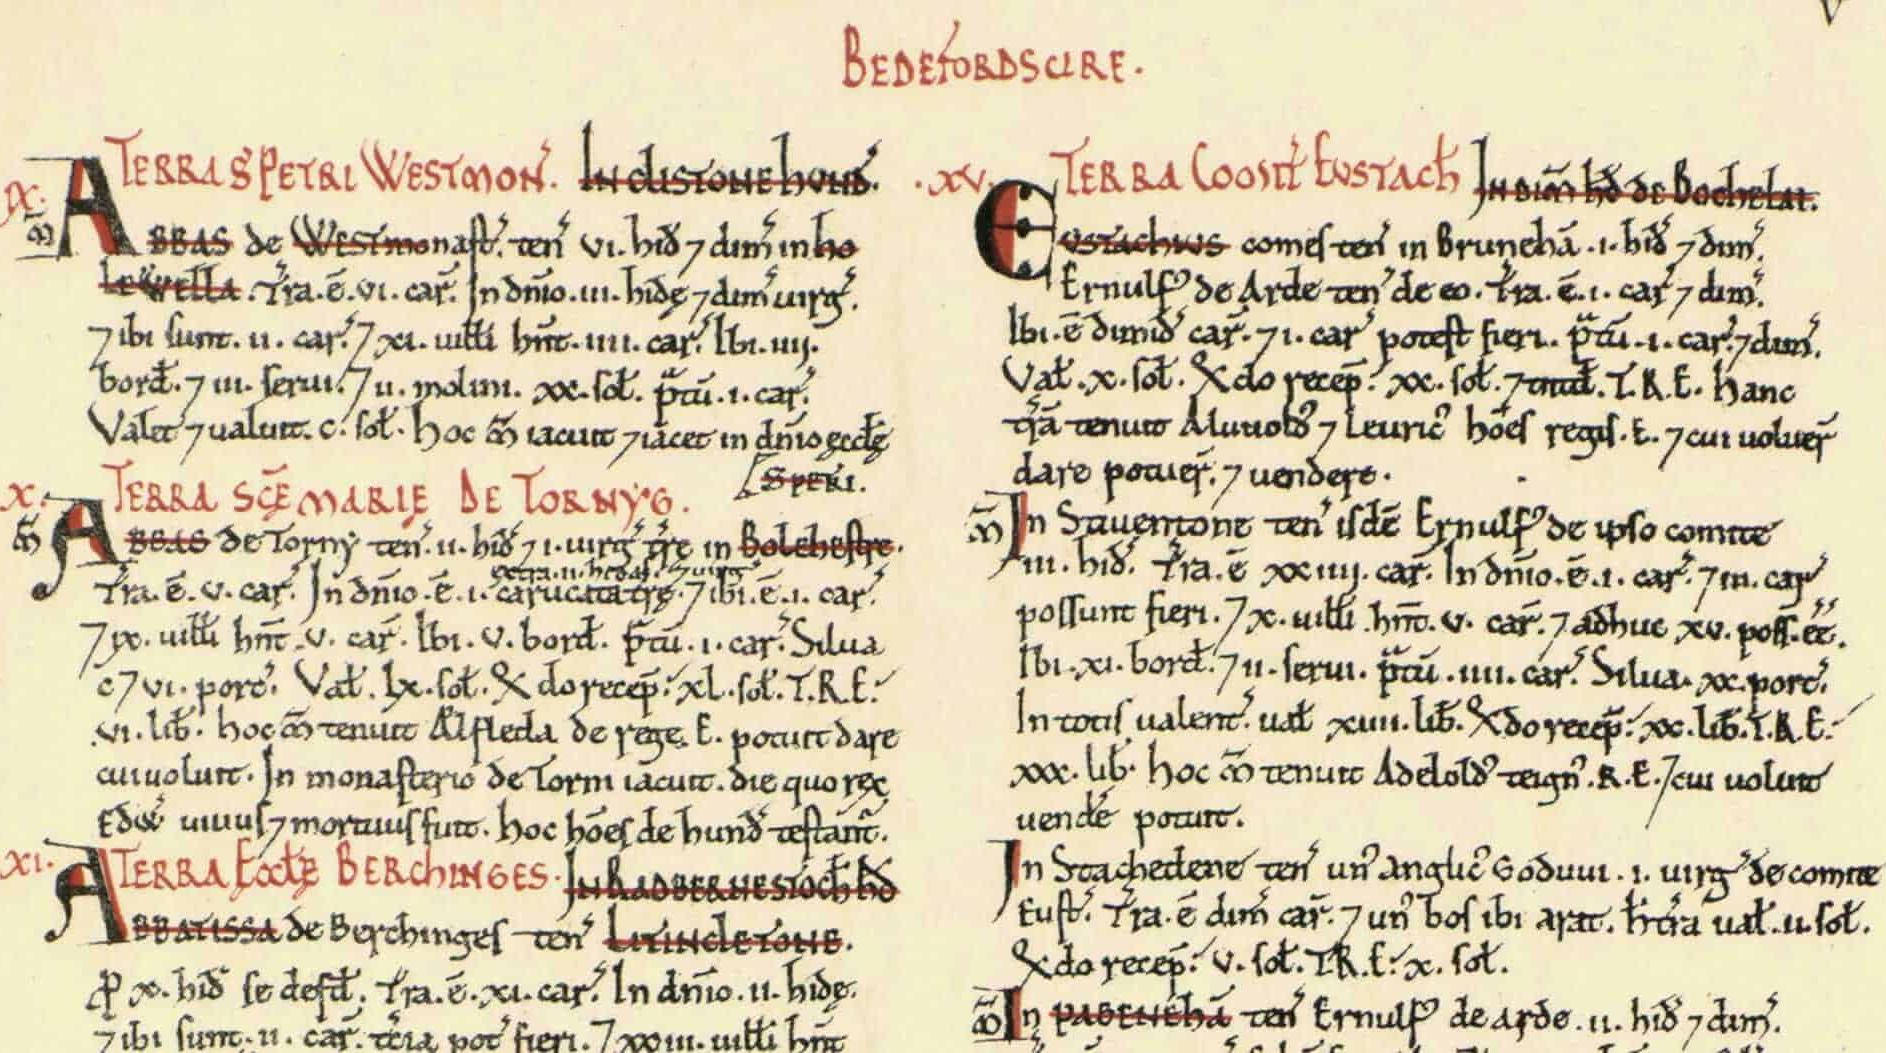 V
BEDEFORDSCIRE.
IX. TERRA S PETRI WESTMON. IN CLISTONE HUND.
M̄ ABBAS de Westmonast̃. ten̄ vi. hid̄ ⁊ dim̄ in ho
lewella. Tr̄a. ē. vi. car̄. In dn̄io. iii. hidę ⁊ dim̄ uirg̃.
⁊ ibi sunt. ii. car̄. ⁊ xi. uilłi hn̄t. iiii. car̄. Ibi. iiij.
bord̄. ⁊ iii. serui. ⁊ ii. molini. xx. soł. p̃tū. i. car̄.
Valet ⁊ ualuit. c. soł. hoc M̄ iacuit ⁊ iacet in dn̄io ęccłę
S PETRI.
X. TERRA SC̄E MARIE DE TORNYG.
M̄ ABBAS de Torny ten̄. ii. hid̄ ⁊ i. uirg̃ tr̄e in Bolehestre.
extra. ii. hidas. ⁊ uirg̃
Tr̄a. ē. v. car̄. In dn̄io. ē. i. carucata tr̄ę. ⁊ ibi. ē. i. car̄.
⁊ ix. uilłi hn̄t. v. car̄. Ibi. v. bord̄. p̃tū. i. car̄. Silua
c ⁊ vi. porc̃. Vał. lx. soł. ⁊ do recep̄. xl. soł. T.R.E.
vi. lib̄. hoc M̄ tenuit Alfleda de rege. E. potuit dare
cui uoluit. In monasterio de Torni iacuit. die quo rex
Edw̄ uiuus ⁊ mortuus fuit. hoc hōes de hund̄ testant̃.
XI. TERRA ECCŁE BERCHINGES. IN RADBERNESTOCH HD̄
ABBATISSA de Berchinges ten̄ LITINCLETONE.
ꝓ x. hid̄ se defd̄. Tr̄a. ē. xi. car̄. In dn̄io. ii. hidę.
⁊ ibi sunt. ii. car̄. tc̄ia pot̃ fieri. ⁊ xxiii. uilłi hn̄t
.XV. TERRA COMIT̃ EUSTACH̄ IN DIM̄ HD̄ DE BOCHELAI.
EUSTACHIUS comes ten̄ in Brunehā. i. hid̄ ⁊ dim̄.
Ernulf᷒ de Arde ten̄ de eo. Tr̄a. ē. i. car̄ ⁊ dim̄.
Ibi. ē dimid̄ car̄. ⁊ i. car̄ potest fieri. p̃tū. i. car̄. ⁊ dim̄.
Vał. x. soł. ⁊ do recep̄. xx. soł. ⁊ tntd̄. T.R.E. hanc
tr̄ā tenuit Aluuold᷒ ⁊ Leuric᷒ hōes regis. E. ⁊ cui uoluer̄
dare potuer̄. ⁊ uendere.
M̄ In Stiuentone ten̄ isdē Ernulf᷒ de ipso comite
iii. hid̄. Tr̄a. ē xxiiij. car̄. In dn̄io. ē. i. car̄. ⁊ iii. car̄
possunt fieri. ⁊ x. uilłi hn̄t. v. car̄. ⁊ adhuc xv. poss̄. ēe.
Ibi. xi. bord̄. ⁊ ii. serui. p̃tū. iiii. car̄. Silua. xx. porc̃.
In totis ualent̃. uał xiiii. lib̄. ⁊ do recep̄. xx. lib̄. T.R.E.
xxx. lib̄. hoc M̄ tenuit Adelold᷒ teign᷒. R.E. ⁊ cui uoluit
uend̄e potuit.
In Stachedene ten̄ un᷒ anglic᷒ Goduui. i. uirg̃ de comite
Eust̃. Tr̄a. ē dim̄ car̄. ⁊ un᷒ bos ibi arat. h̄ tr̄a uał. ii. soł.
⁊ do recep̄. v. soł. T.R.E. x. soł.
M̄ In PABENEHĀ ten̄ Ernulf᷒ de arde. ii. hid̄ ⁊ dim̄.